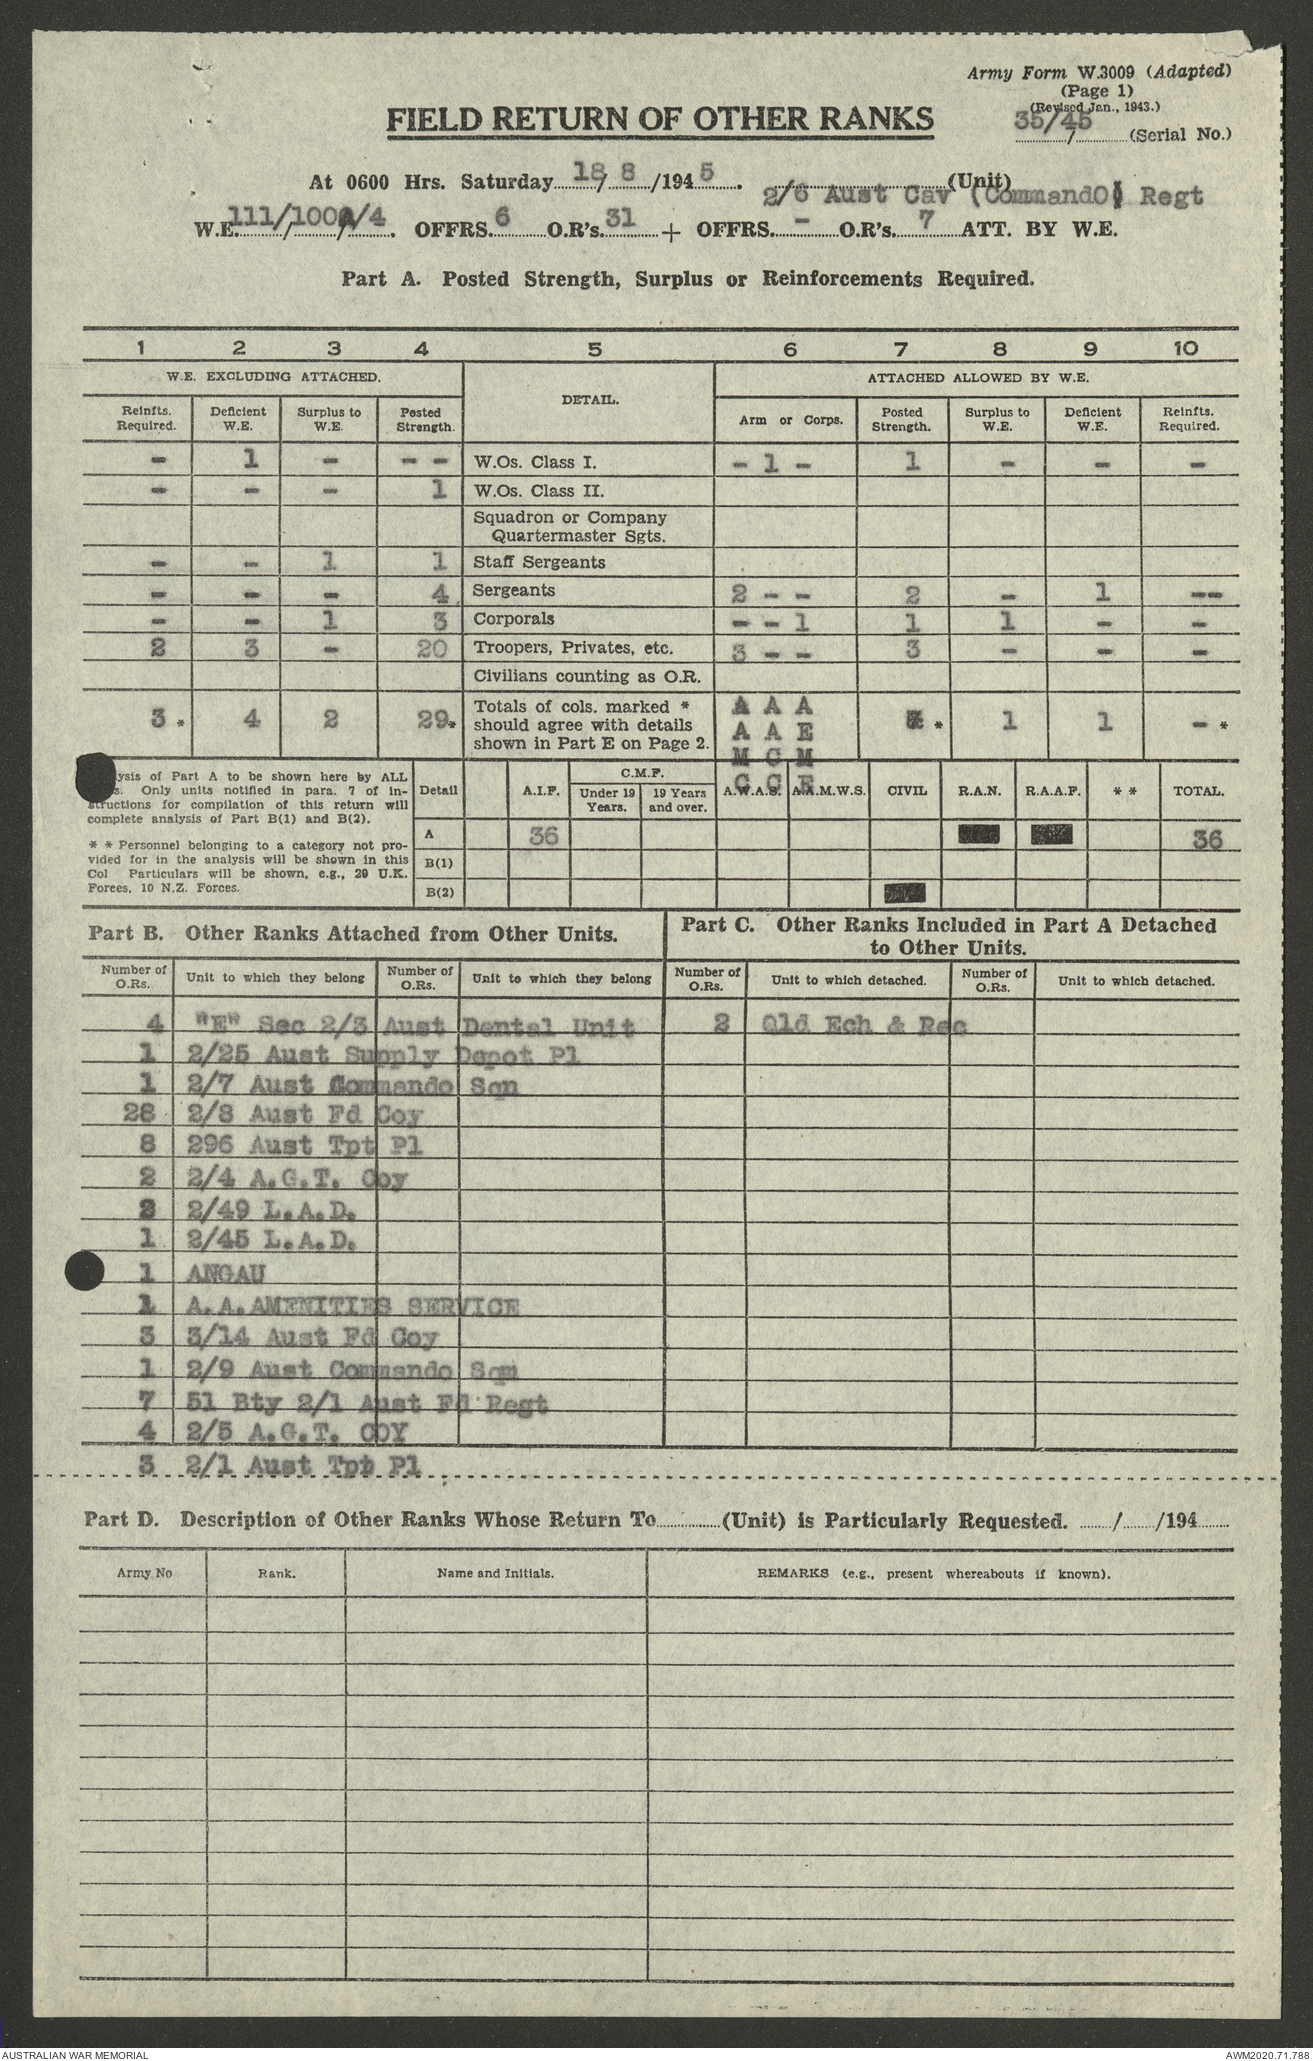 Army Form W.3009 (Adapted)
(Page 1)
(Revised Jan., 1943.)
35/45
(Serial No.)
FIELD RETURN OF OTHER RANKS
At 0600 Hrs. Saturday 18/8/1945. 2/6 Aust Cav (CommandO) Regt (Unit)
W.E. 111/100 /4. OFFRS. 6 O.R's. 31 + OFFRS. - O.R's. 7 ATT. BY W.E.
Part A. Posted Strength, Surplus or Reinforcements Required.
1 2 3 4 5 6 7 8 9 10
W.E. EXCLUDING ATTACHED. DETAIL. ATTACHED ALLOWED BY W.E.
Reinfts. Required. Deficient W.E. Surplus to W.E. Posted Strength. Arm or Corps. Posted Strength. Surplus to W.E. Deficient W.E. Reinfts. Required.
- 1 - - - W.Os. Class I. - 1 - 1 - - -
- - - 1 W.Os. Class II.
Squadron or Company
Quartermaster Sgts.
- - 1 1 Staff Sergeants
- - - 4 Sergeants 2 - - 2 - 1 --
- - 1 3 Corporals - - 1 1 1 - -
2 3 - 20 Troopers, Privates, etc. 3 - - 3 - - -
Civilians counting as O.R.
3 * 4 2 29* Totals of cols. marked * should agree with details shown in Part E on Page 2. * 1 1 - *
A A A
A A E
M C M
C C E
ysis of Part A to be shown here by ALL
s. Only units notified in para. 7 of in-
structions for compilation of this return will
complete analysis of Part B(1) and B(2).
* * Personnel belonging to a category not pro-
vided for in the analysis will be shown in this
Col Particulars will be shown, e.g., 20 U.K.
Forces, 10 N.Z. Forces.
Detail A.I.F. C.M.F. Under 19 Years. 19 Years and over. A.W.A.S. A.A.M.W.S. CIVIL R.A.N. R.A.A.F. * * TOTAL.
A 36 36
B(1)
B(2)
Part B. Other Ranks Attached from Other Units.
Part C. Other Ranks Included in Part A Detached
to Other Units.
Number of O.Rs. Unit to which they belong Number of O.Rs. Unit to which they belong Number of O.Rs. Unit to which detached. Number of O.Rs. Unit to which detached.
4 "E" Sec 2/3 Aust Dental Unit 2 Qld Ech & Rec
1 2/25 Aust Supply Depot Pl
1 2/7 Aust Commando Sqn
28 2/8 Aust Fd Coy
8 296 Aust Tpt Pl
2 2/4 A.G.T. Coy
2/49 L.A.D.
1 2/45 L.A.D.
1 ANGAU
1 A.A.AMENITIES SERVICE
3 3/14 Aust Fd Coy
1 2/9 Aust Commando Sqn
7 51 Bty 2/1 Aust Fd Regt
4 2/5 A.G.T. COY
3 2/1 Aust Tpt Pl
Part D. Description of Other Ranks Whose Return To (Unit) is Particularly Requested. / /194
Army No Rank. Name and Initials. REMARKS (e.g., present whereabouts if known).
AUSTRALIAN WAR MEMORIAL AWM2020.71.788